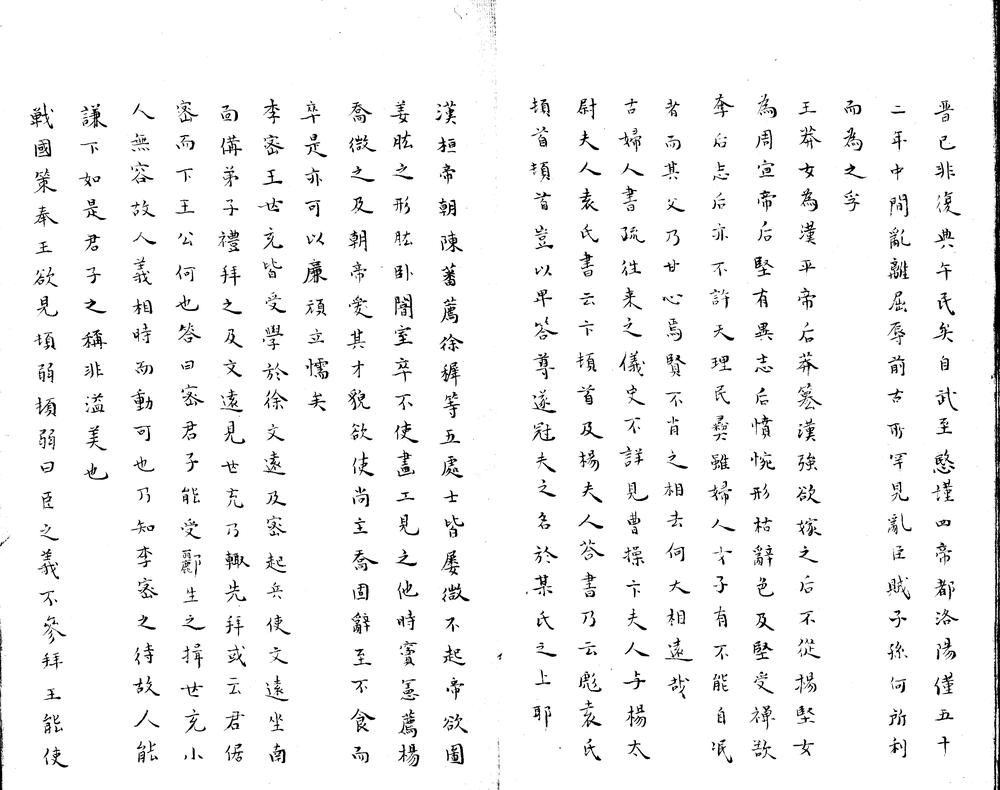 晋已非復典午民矣自武至愍懂四帝都洛陽僅五十
二年中間亂離屈辱前古所罕見亂臣賊子孫何所利
而為之孚
王莽女為漢平帝后莽篡漢強欲嫁之后不從楊堅女
為周宣帝后堅有異志后憤惋形枯辭色及堅受禅欲
奪后志后亦不許天理民彛雖婦人女子有不能自泯
者而其父乃甘心焉賢不肖之相去何大相遠哉
古婦人書疏往来之儀史不詳見曹操卞夫人与楊太
尉夫人袁氏書云卞頓首及楊夫人答書乃云彪袁氏
頓首頓首豈以卑答尊遂冠夫之名於某氏之上耶
漢桓帝朝陳蕃薦徐穉等五處士皆屡徴不起帝欲圖
姜肱之形肱卧闇室卒不使畫工見之他時竇憲薦楊
喬徴之及朝帝愛其才貌欲使尚主喬固辭至不食而
卒是亦可以廉頑立懦矣
李密王世充皆受學於徐文遠及密起兵使文遠坐南
面備弟子禮拜之及文遠見世充乃輙先拜或云君倨
密而下王公何也答曰密君子能受酈生之揖世充小
人無容故人義相時而動可也乃知李密之待故人能
謙下如是君子之稱非溢美也
戰國策奉王欲見頓弱頓弱曰臣之義不參拜王能使